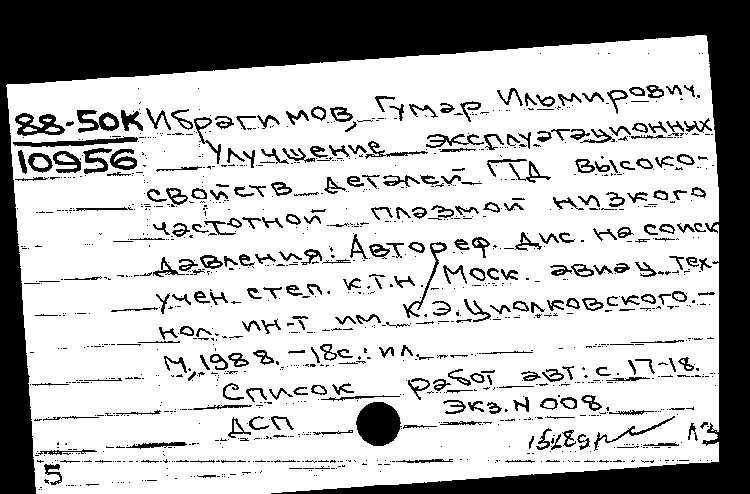 88-50К Ибрагимов, Гумар Ильмирович.
10956 Улучшение эксплуатационных
свойств деталей ГТД высоко-
частотной плазмой низкого
давления: Автореф. дис. на соиск
учен. степ. к.т.н. / Моск. авиац. тех-
нол. ин-т им. К.Э.Циолковского.-
М., 1988. -18с.: ил.
Список работ авт: с. 17-18.
ДСП Экз. N 008.
ЛЗ
5